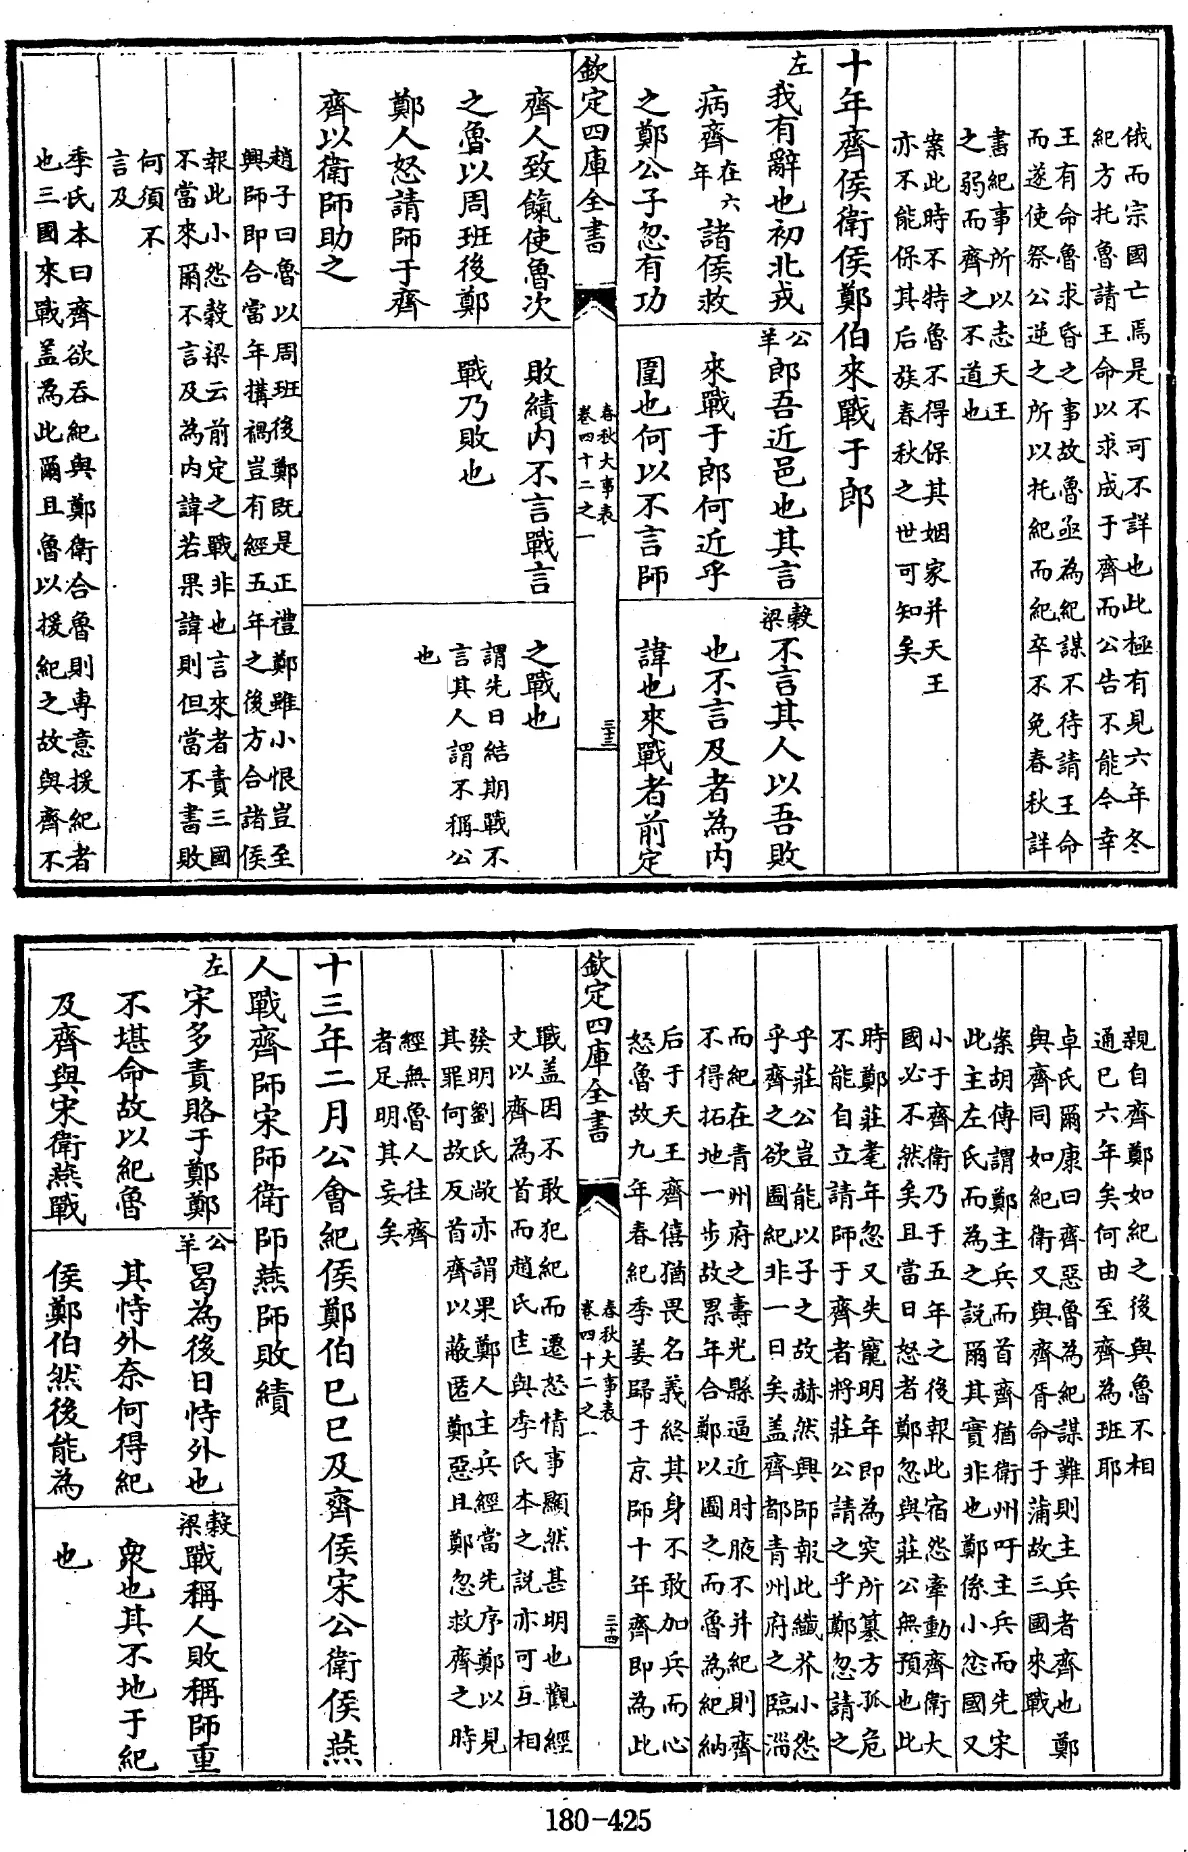 俄而宗國亡焉是不可不詳也此極有見六年冬
紀方托魯請王命以求成于齊而公告不能今幸
王有命魯求昏之事故魯亟為紀謀不待請王命
而遂使祭公逆之所以托紀而紀卒不免春秋詳
書紀事所以志天王
之弱而齊之不道也
案此時不特魯不得保其姻家并天王
亦不能保其后族春秋之世可知矣
十年齊侯衛侯鄭伯來戰于郎
左我有辭也初北戎
病齊在六年諸侯救
之鄭公子忽有功
公羊郎吾近邑也其言
來戰于郎何近乎
圍也何以不言師
穀梁不言其人以吾敗
也不言及者為内
諱也來戰者前定
欽定四庫全書
春秋大事表
卷四十二之一
三十三
齊人致餼使魯次
之魯以周班後鄭
鄭人怒請師于齊
齊以衛師助之
敗績内不言戰言
戰乃敗也
之戰也
謂先日結期戰不
言其人謂不稱公
也
趙子曰魯以周班後鄭既是正禮鄭雖小恨豈至
興師即合當年搆禍豈有經五年之後方合諸侯
報此小怨穀梁云前定之戰非也言來者責三國
不當來爾不言及為内諱若果諱則但當不書敗
何須不
言及
季氏本曰齊欲吞紀與鄭衛合魯則専意援紀者
也三國來戰盖為此爾且魯以援紀之故與齊不
親自齊鄭如紀之後與魯不相
通已六年矣何由至齊為班耶
卓氏爾康曰齊惡魯為紀謀難則主兵者齊也鄭
與齊同如紀衛又與齊胥命于蒲故三國來戰
案胡傳謂鄭主兵而首齊猶衛州吁主兵而先宋
此主左氏而為之説爾其實非也鄭係小忿國又
小于齊衛乃于五年之後報此宿怨牽動齊衛大
國必不然矣且當日怒者鄭忽與莊公無預也此
時鄭莊耄年忽又失寵明年即為突所簒方孤危
不能自立請師于齊者將莊公請之乎鄭忽請之
乎莊公豈能以子之故赫然興師報此纎芥小怨
乎齊之欲圖紀非一日矣盖齊都青州府之臨淄
而紀在青州府之壽光縣逼近肘腋不并紀則齊
不得拓地一步故累年合鄭以圖之而魯為紀納
后于天王齊僖猶畏名義終其身不敢加兵而心
怒魯故九年春紀季姜歸于京師十年齊即為此
欽定四庫全書
春秋大事表
卷四十二之一
三十四
戰盖因不敢犯紀而遷怒情事顯然甚明也觀經
文以齊為首而趙氏匡與季氏本之説亦可互相
發明劉氏敞亦謂果鄭人主兵經當先序鄭以見
其罪何故反首齊以蔽匿鄭惡且鄭忽救齊之時
經無魯人往齊
者足明其妄矣
十三年二月公會紀侯鄭伯己巳及齊侯宋公衛侯燕
人戰齊師宋師衛師燕師敗績
左宋多責賂于鄭鄭
不堪命故以紀魯
及齊與宋衛燕戰
公羊曷為後日恃外也
其恃外奈何得紀
侯鄭伯然後能為
穀梁戰稱人敗稱師重
衆也其不地于紀
也
180-425